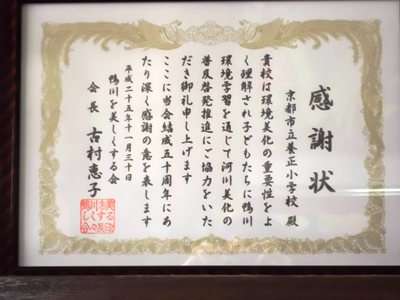 感謝状
京都市立養正小学校 殿
貴校は環境美化の重要性をよ
く理解され子どもたちに鴨川
環境学習を通じて河川美化の
普及啓発推進にご協力をいた
だき御礼申し上げます
ここに当会結成五十周年にあ
たり深く感謝の意を表します
平成二十五年十一月三十日
鴨川を美しくする会
会長 古村恵子